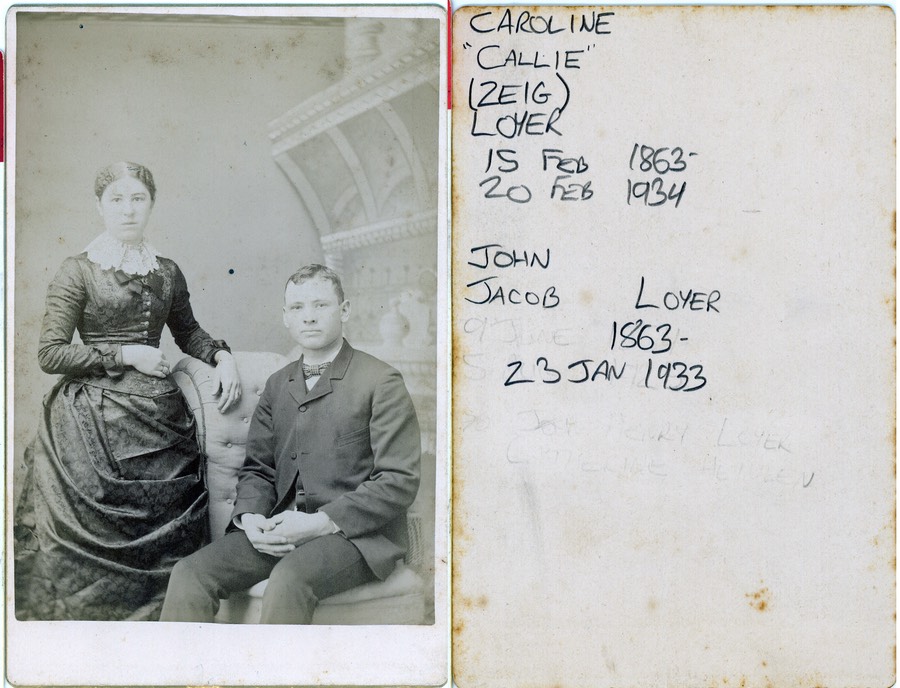 CAROLINE
"CALLIE"
(ZEIG)
LOYER
15 FEB 1863-
20 FEB 1934
JOHN
JACOB LOYER
1863-
23 JAN 1933
HENRY LOYER